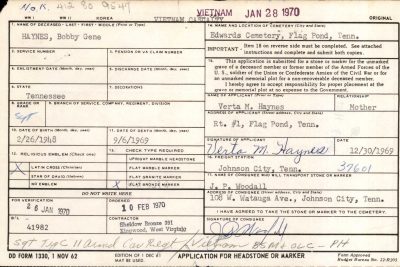 No K. 412 80 9547
VIETNAM JAN 28 1970
VIETNAM CASUALTY
WW I
WW II
KOREA
ORIGINAL
1. NAME OF DECEASED - LAST - FIRST - MIDDLE (Print or Type)
HAYNES, Bobby Gene
14. NAME AND LOCATION OF CEMETERY (City and State)
Edwards Cemetery, Flag Pond, Tenn.
2. SERVICE NUMBER
3. PENSION OR VA CLAIM NUMBER
IMPORTANT: Item 18 on reverse side must be completed. See attached
instructions and complete and submit both copies.
4. ENLISTMENT DATE (Month, day, year)
5. DISCHARGE DATE (Month, day, year)
15. This application is submitted for a stone or marker for the unmarked
grave of a deceased member or former member of the Armed Forces of the
U. S., soldier of the Union or Confederate Armies of the Civil War or for
an unmarked memorial plot for a non-recoverable deceased member.
I hereby agree to accept responsibility for proper placement at the
grave or memorial plot at no expense to the Government.
6. STATE
Tennessee
7. DECORATIONS
8. GRADE OR RANK
Sgt
9. BRANCH OF SERVICE, COMPANY, REGIMENT, DIVISION
NAME OF APPLICANT (Print or Type)
RELATIONSHIP
Verta M. Haynes
Mother
ADDRESS OF APPLICANT (Street address, City and State)
Rt. #1, Flag Pond, Tenn.
10. DATE OF BIRTH (Month, day, year)
2/26/1948
11. DATE OF DEATH (Month, day, year)
9/6/1969
SIGNATURE OF APPLICANT
DATE
Verta M. Haynes
12/30/1969
12. RELIGIOUS EMBLEM (Check one)
13. CHECK TYPE REQUIRED
UPRIGHT MARBLE HEADSTONE
X LATIN CROSS (Christian)
FLAT MARBLE MARKER
STAR OF DAVID (Hebrew)
FLAT GRANITE MARKER
NO EMBLEM
X FLAT BRONZE MARKER
16. FREIGHT STATION
Johnson City, Tenn. 37601
17. NAME OF CONSIGNEE WHO WILL TRANSPORT STONE OR MARKER
J. P. Woodall
DO NOT WRITE HERE
FOR VERIFICATION
28 JAN 1970
ORDERED
10 FEB 1970
ADDRESS OF CONSIGNEE (Street address, City and State)
108 W. Watauga Ave., Johnson City, Tenn.
B/L
41982
Sheldow Bronze 391
Kingwood, West Virginia
I HAVE AGREED TO TRANSPORT THE STONE OR MARKER TO THE CEMETERY.
SIGNATURE OF CONSIGNEE
Sgt Trp C 11 Armd Cav Regt Vietnam BSM & OLC - PH
DD FORM 1330, 1 NOV 62
EDITION OF 1 DEC 61
APPLICATION FOR HEADSTONE OR MARKER
Form Approved